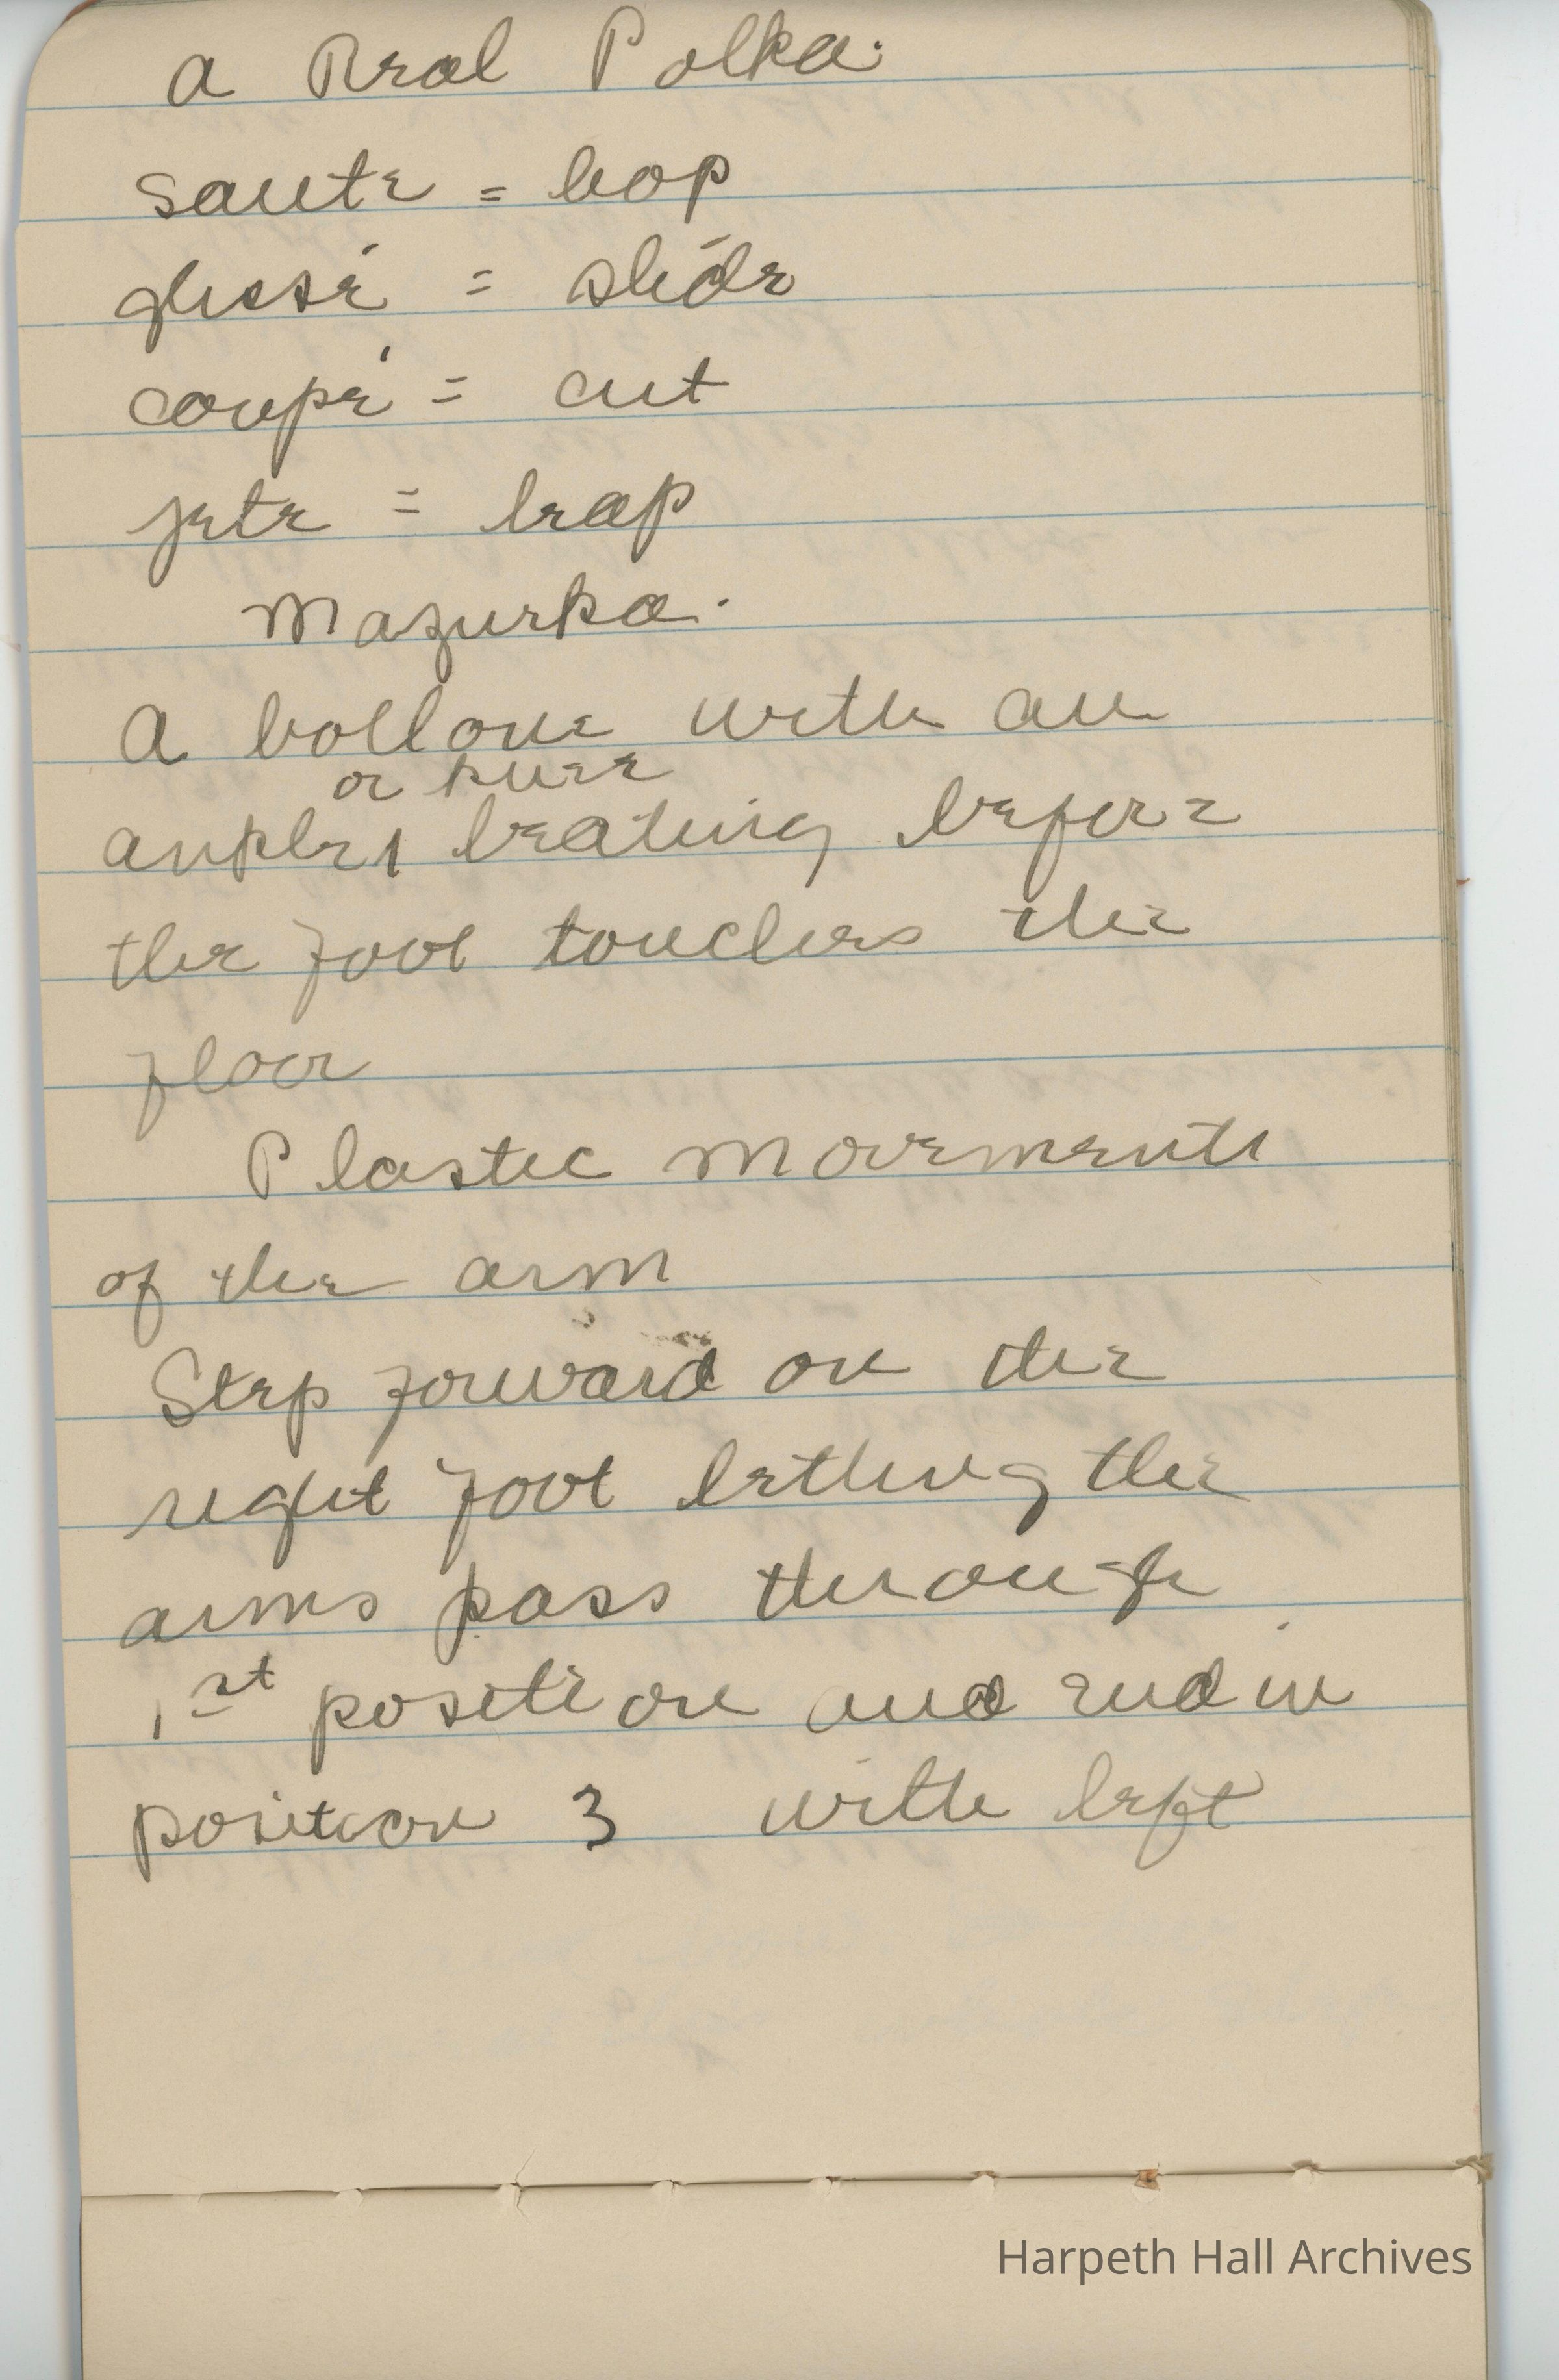 A Real Polka.
saute = hop
glissé = slide
coupé = cut
jete = leap
Mazurka.
A ballone with an
or knee
ankle beating before
the foot touches the
floor
Plastic Movements
of the arm
Step forward on the
right foot letting the
arms pass through
1st position and end in
position 3 with left
Harpeth Hall Archives